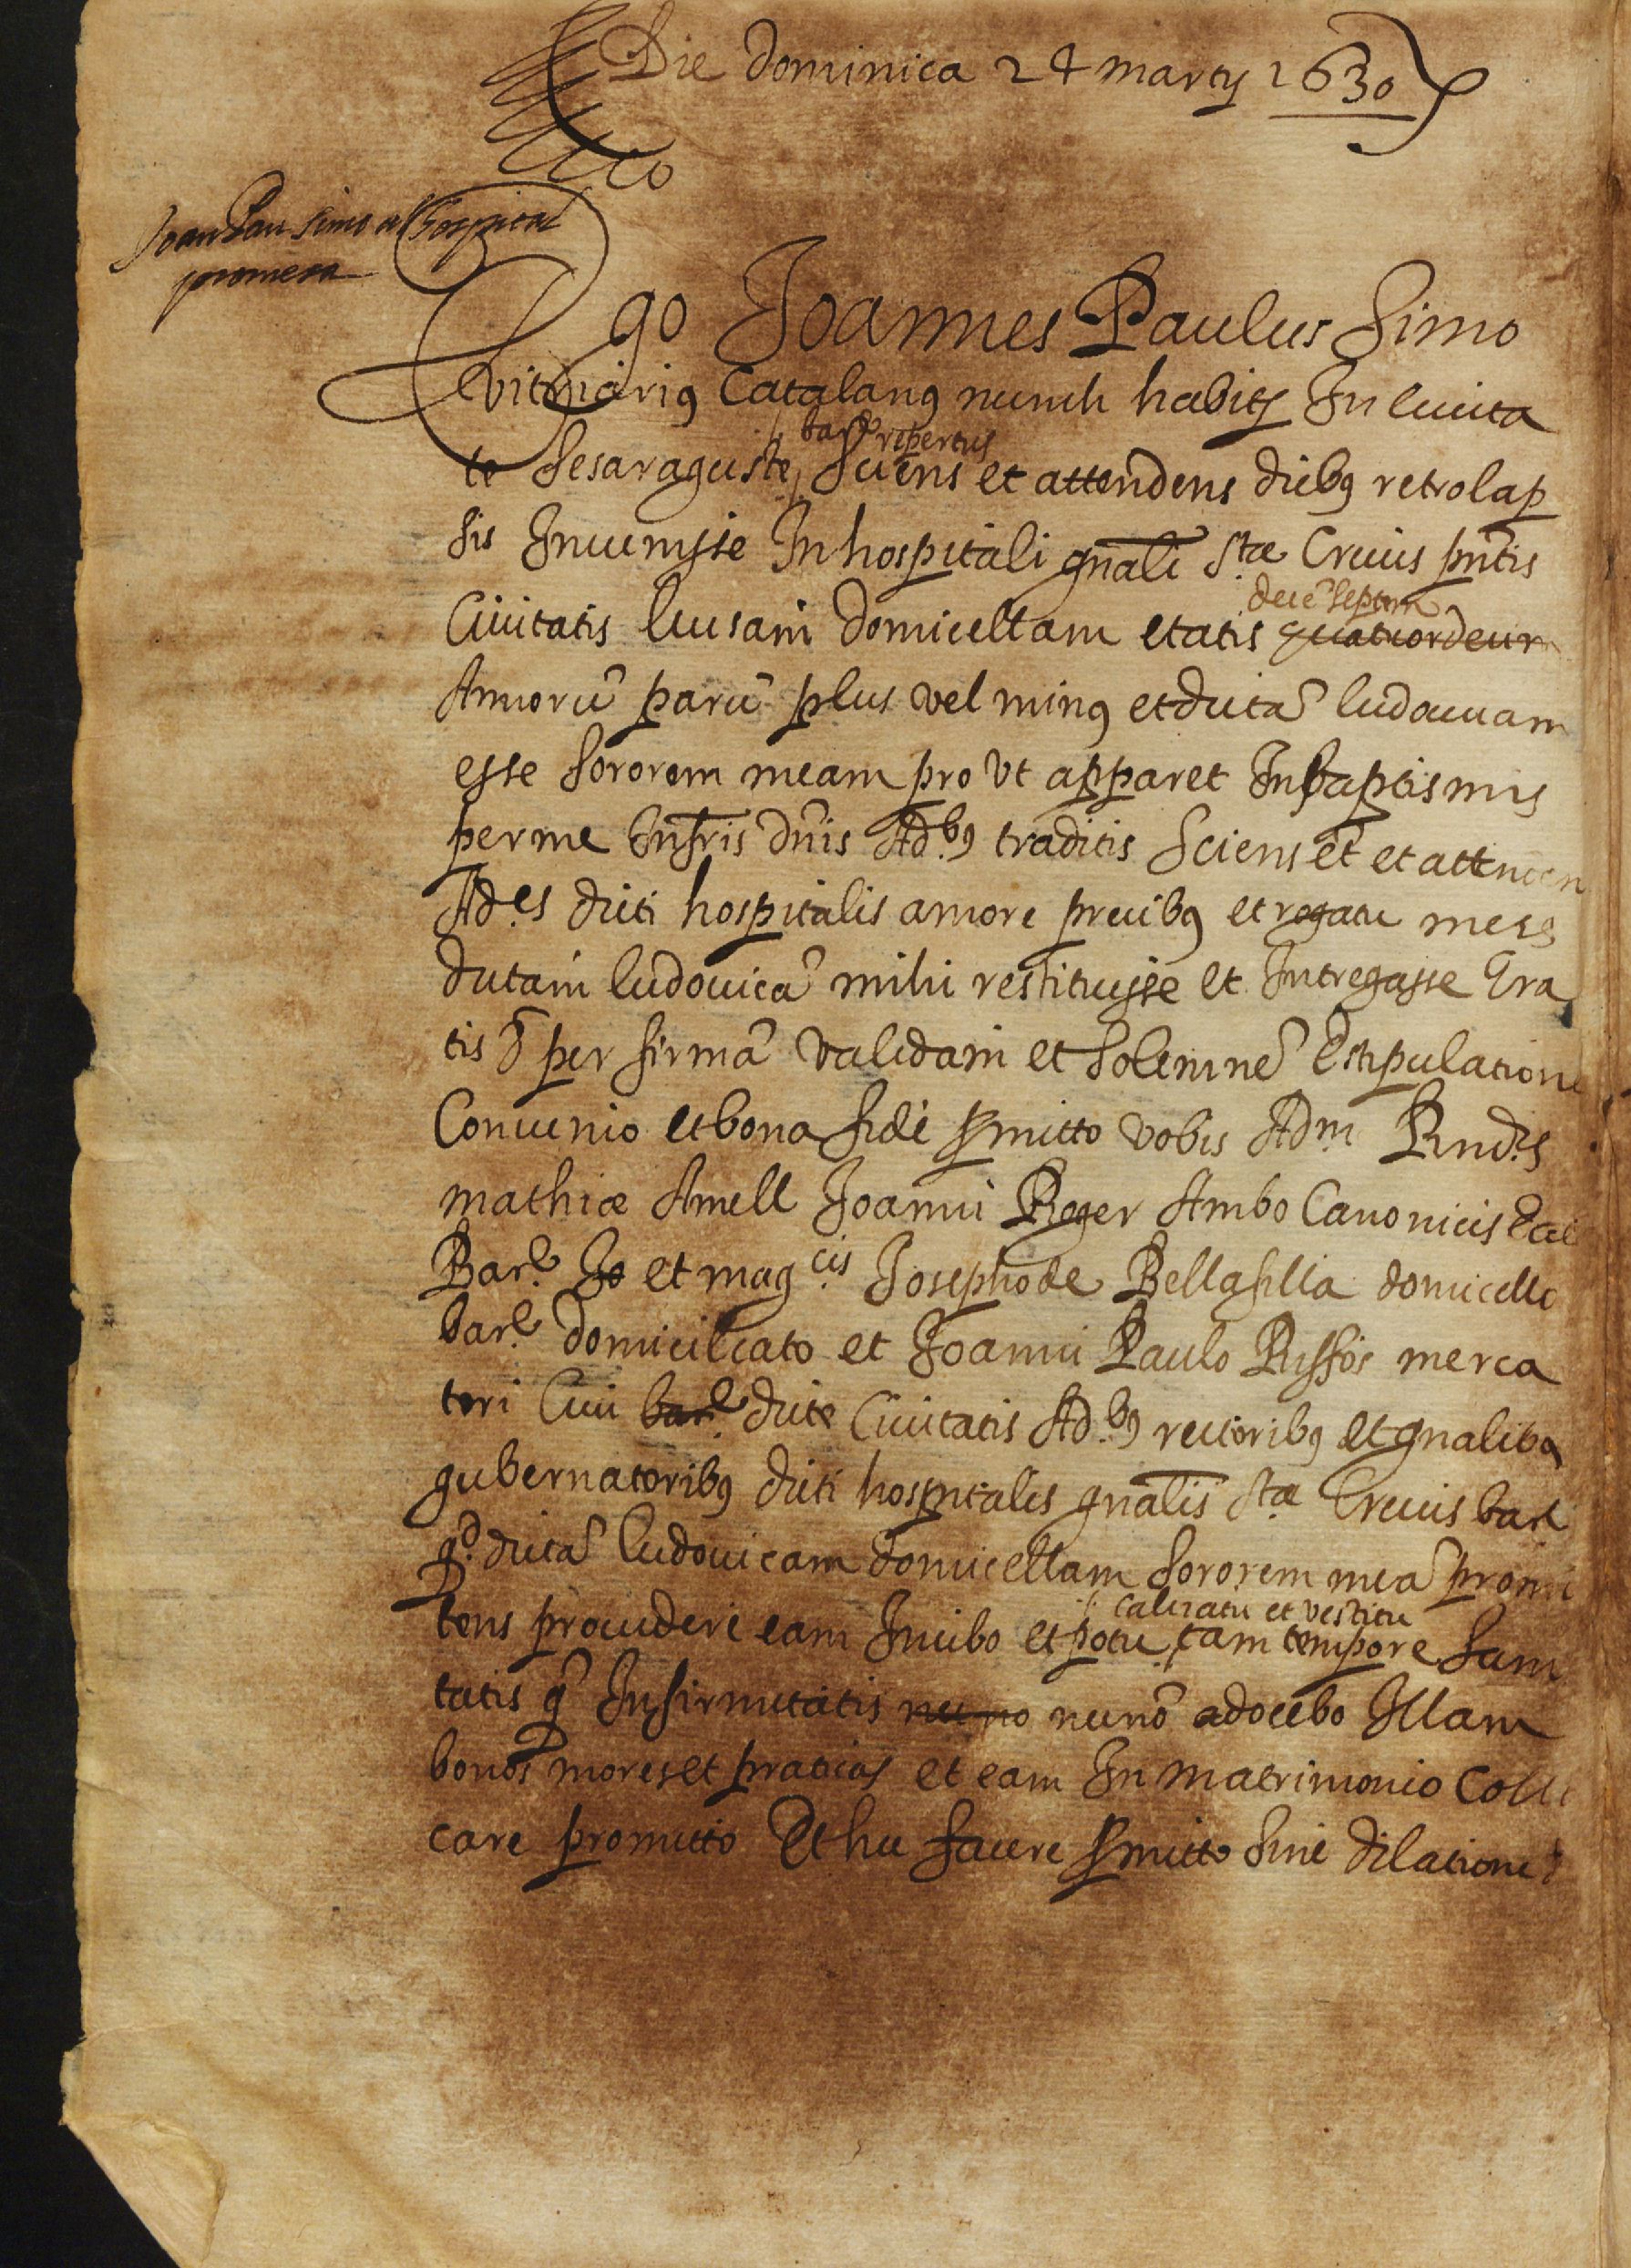 Die dominica 24 martij 1630
Joan Pau Simo al hospital
promesa
Ego Joannes Paulus Simo
vitriarius Catalanus nunch habits In Ciuita
barᵉ repertus
te Sesarauguste, Sciens et attendens diebus retrolap
sis Inuenisse In hospitali gnali Stæ Crucis pntis
decē septem
Ciuitatis Luisam domicellam etatis quatuordecim
Annorū parū plus vel minus et dictā ludouicam
esse sororem meam pro vt apparet In baptismis
per me dnis Ad.bus traditis Sciens et
Ad.es dicti hospitalis amore precibus et rogatu meis
dictam ludouicā mihi restituisse et Intregasse Gra
tis & per firmā validam et Solemnē Estipulatione
Conuenio et bona fide pmitto vobis Adm Rnd.is
mathiæ Amell Joanni Roger Ambo Canonicis Eccl
Barᵉ Jo et mag.cis Josepho de Bellafilla domicello
barᵉ domiciliato et Joanni Paulo Riffos merca
tori Ciui barᵉ dicte Ciuitatis Ad.bus rectoribus et gnalibus
gubernatoribus dicti hospitalis gnalis Stæ Crucis bar
qd. dictā ludouicam domicellam Sororem meā promi
calciatu et vestitu
tens prouidere eam In cibo et potu, tam tempore Sani
tatis q̄ Infirmitatis nec no necnō adocebo Illam
bonos mores et praticas et eam In matrimonio Collo
care promitto Et hec facere pmitto Sine dilatione